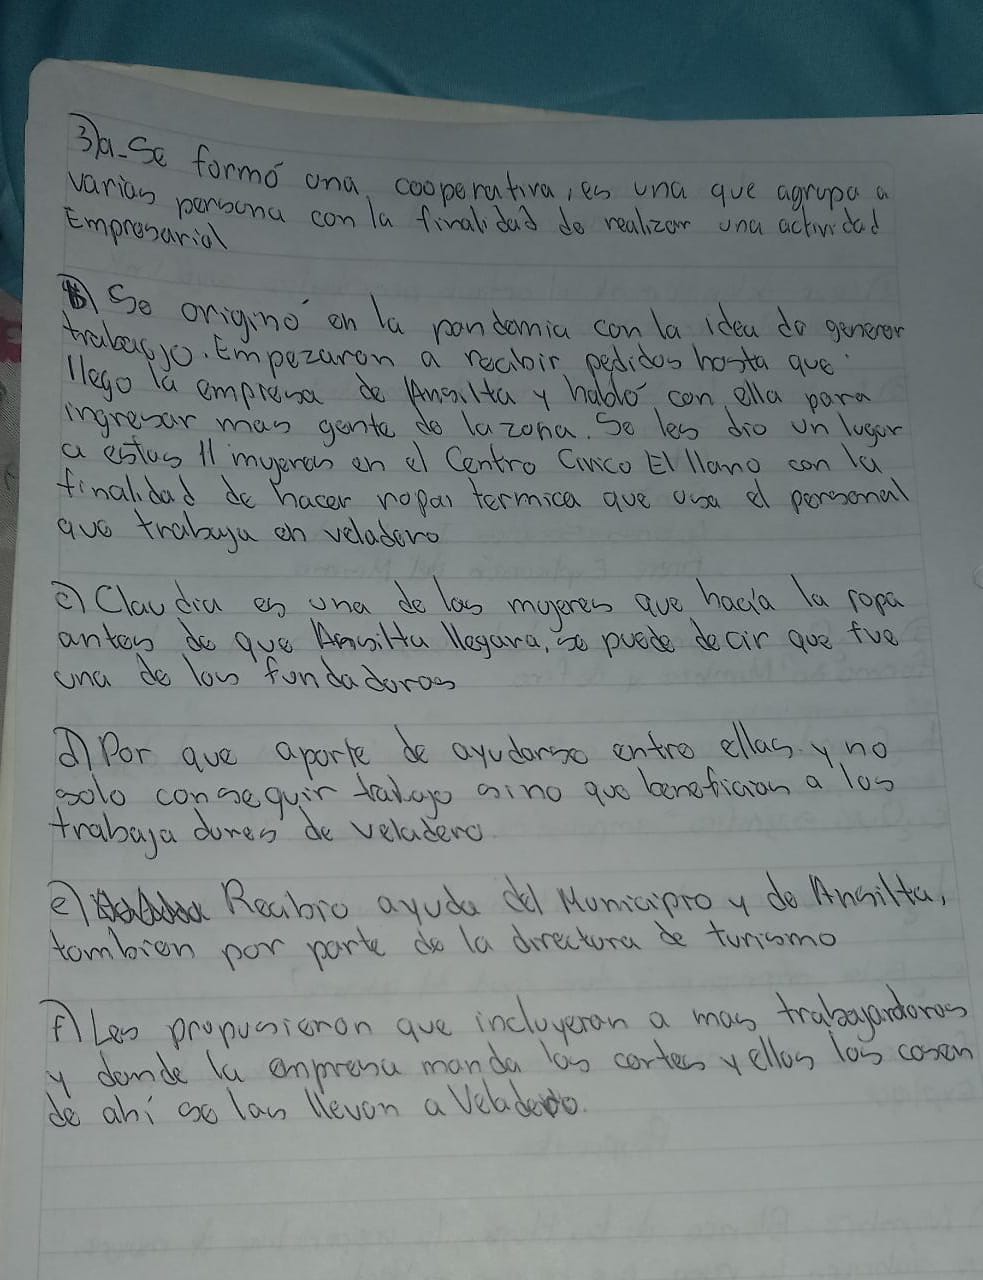 3)a-Se formó una cooperativa, es una que agrupa a
varias persona con la finalidad de realizar una actividad
Empresarial
b) Se originó en la pandemia con la idea de generar
trabajo. Empezaron a recibir pedidos hasta que
llego la empresa de Ansilta y habló con ella para
ingresar mas gente de la zona. Se les dio un lugar
a estas 11 mujeres en el Centro Civico El llano con la
finalidad de hacer ropas termica que usa el personal
que trabaja en veladero
c) Claudia es una de las mujeres que hacía la ropa
antes de que Ansilta llegara, se puede decir que fue
una de los fundadoras
d) Por que aparte de ayudarse entre ellas y no
solo conseguir trabajo sino que benefician a los
trabajadores de veladero
e) Recibio ayuda del Municipio y de Ansilta,
tambien por parte de la directora de turismo
f) Les propusieron que incluyeran a mas trabajardoras
y donde la empresa manda los cortes y ellas los cosen
de ahi se las llevan a Veladero.